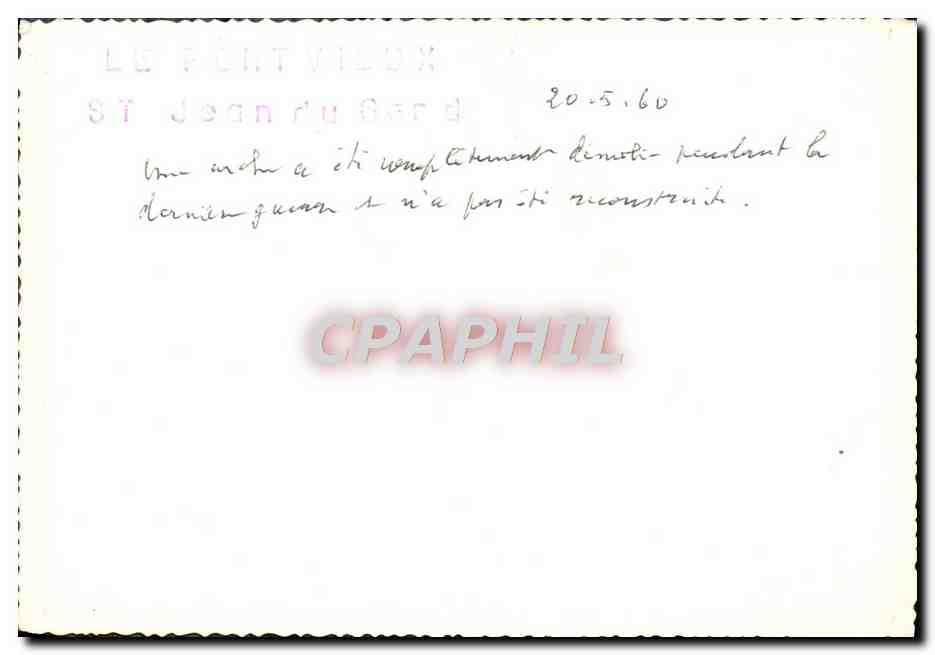 LE PONT VIEUX
ST Jean du Gard
20.5.60
une arche a été complètement démolie pendant la
dernière guerre et n'a pas été reconstruite.
CPAPHIL